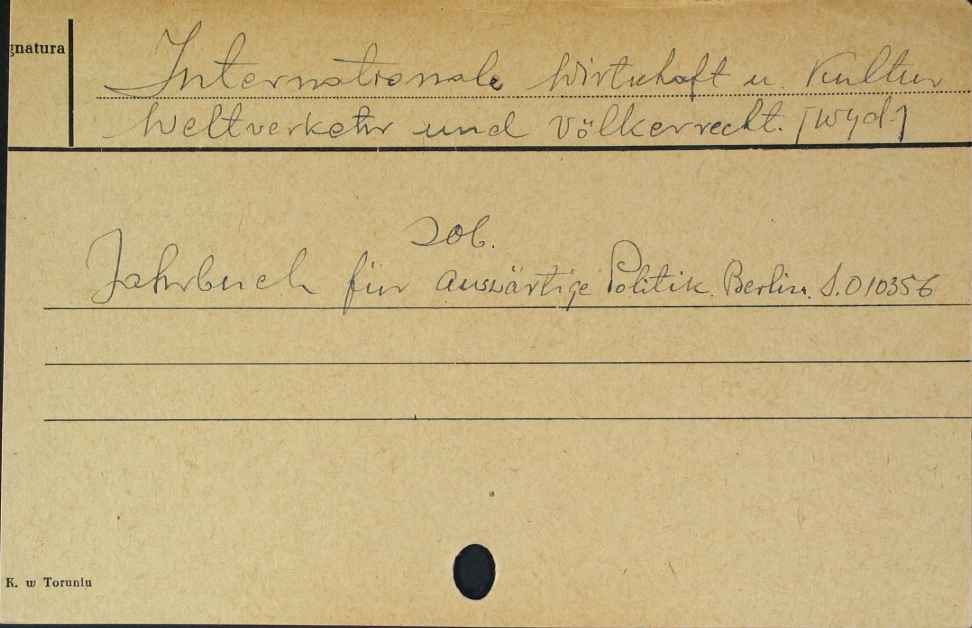 gnatura
Internationale Wirtschaft u. Kultur
Weltverkehr und Völkerrecht. [Wyd.]
Zob.
Jahrbuch für auswärtige Politik. Berlin. S.010356
K. w Toruniu